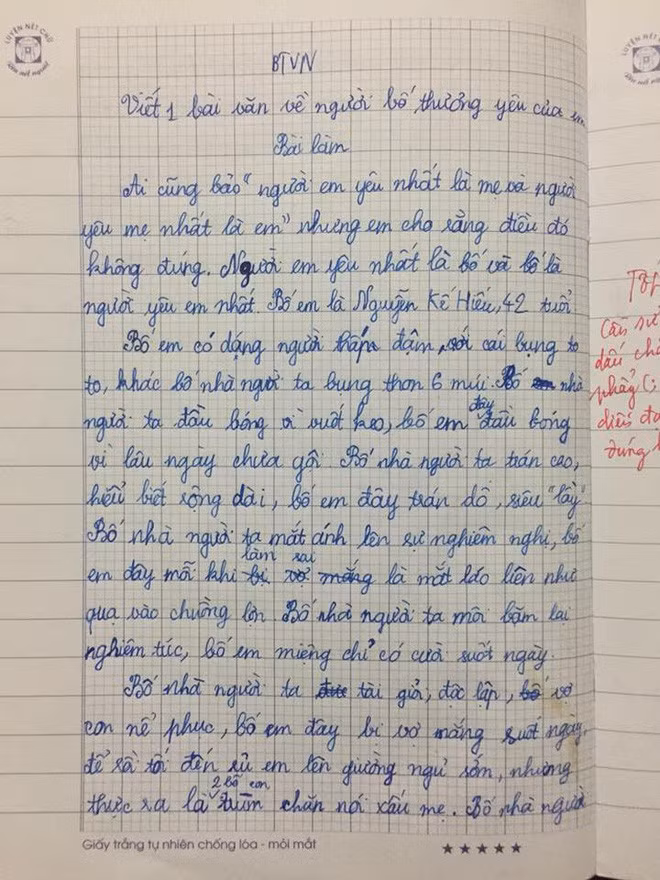 LUYỆN NÉT CHỮ
Rèn nết người
BTVN
Viết 1 bài văn về người bố thương yêu của em
Bài làm
Ai cũng bảo "người em yêu nhất là mẹ và người
yêu mẹ nhất là em" nhưng em cho rằng điều đó
không đúng. Người em yêu nhất là bố và bố là
người yêu em nhất. Bố em là Nguyễn Kế Hiếu, 42 tuổi.
Bố em có dáng người thấp đậm, với cái bụng to
to, khác bố nhà người ta bụng thon 6 múi. Bố nhà
người ta đầu bóng vì vuốt keo, bố em đây đầu bóng
vì lâu ngày chưa gội. Bố nhà người ta trán cao,
hiểu biết rộng dài, bố em đây trán dô, siêu "lầy"
Bố nhà người ta mắt ánh lên sự nghiêm nghị, bố
em đây mỗi khi làm sai là mắt láo liên như
quạ vào chuồng lợn. Bố nhà người ta môi bặm lại
nghiêm túc, bố em miệng chỉ có cười suốt ngày.
Bố nhà người ta tài giỏi, độc lập, vợ
con nể phục, bố em đây bị vợ mắng suốt ngày,
để rồi tối đến rủ em lên giường ngủ sớm, nhưng
thực ra là 2 bố con trùm chăn nói xấu mẹ. Bố nhà người
Giấy trắng tự nhiên chống lóa - mỏi mắt
★★★★★
Cần sử
dấu ch
phẩy (;
diễn đạ
đúng